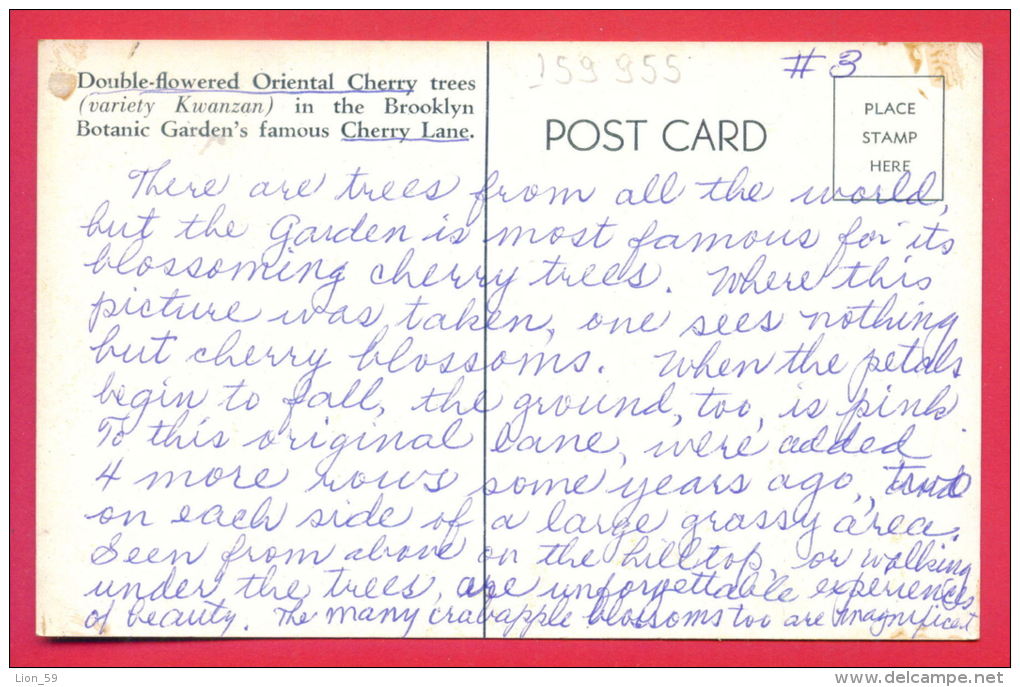 159955
#3
Double-flowered Oriental Cherry trees
(variety Kwanzan) in the Brooklyn
Botanic Garden's famous Cherry Lane.
POST CARD
PLACE
STAMP
HERE
There are trees from all the world,
but the Garden is most famous for its
blossoming cherry trees. Where this
picture was taken, one sees nothing
but cherry blossoms. When the petals
begin to fall, the ground, too, is pink.
To this original lane, were added
4 more rows some years ago, two
on each side of a large grassy area.
Seen from above on the hilltop, or walking
under the trees, are unforgettable experiences
of beauty. The many crabapple blossoms too are magnificent
Lion_59
www.delcampe.net